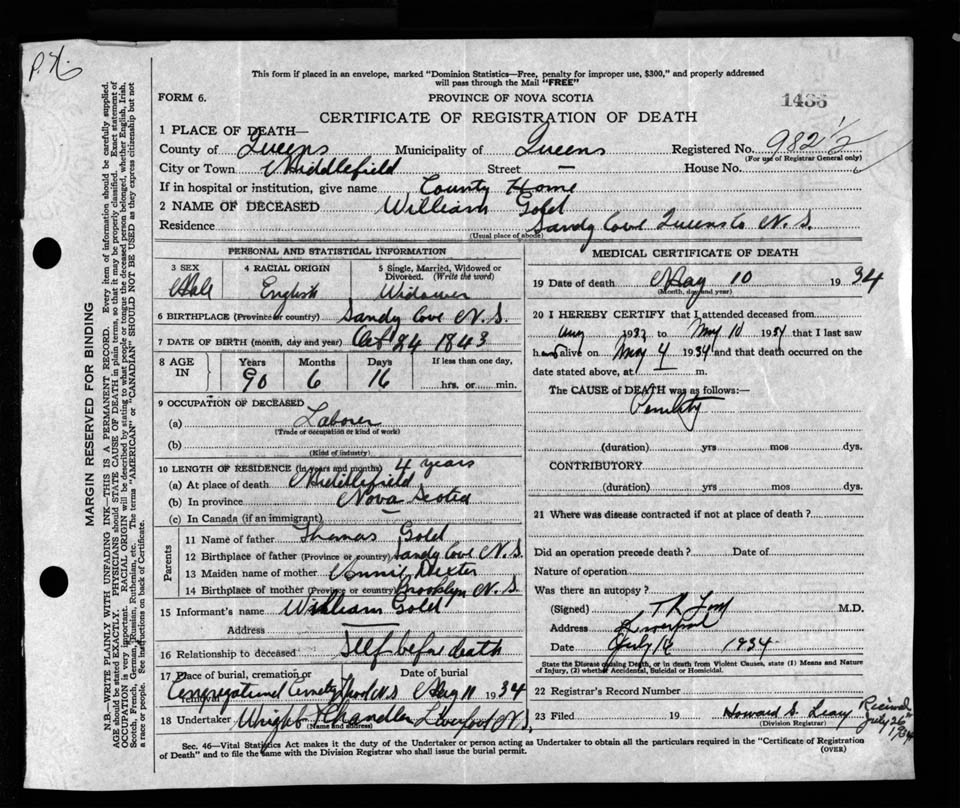 P.X.
This form if placed in an envelope, marked "Dominion Statistics—Free, penalty for improper use, $300," and properly addressed
will pass through the Mail "FREE"
FORM 6.
PROVINCE OF NOVA SCOTIA
1435
CERTIFICATE OF REGISTRATION OF DEATH
1 PLACE OF DEATH—
County of Queens Municipality of Queens Registered No. 982 1/2
(For use of Registrar General only)
City or Town Middlefield Street — House No.
If in hospital or institution, give name County Home
2 NAME OF DECEASED William Gold
Residence Sandy Cove Queens Co N.S.
(Usual place of abode)
PERSONAL AND STATISTICAL INFORMATION
3 SEX
Male
4 RACIAL ORIGIN
English
5 Single, Married, Widowed or Divorced. (Write the word)
Widower
6 BIRTHPLACE (Province or country) Sandy Cove N.S.
7 DATE OF BIRTH (month, day and year) Oct 24 1843
8 AGE IN
Years Months Days If less than one day,
90 6 16 hrs. or min.
9 OCCUPATION OF DECEASED
(a) Laborer
(Trade or occupation or kind of work)
(b)
(Kind of industry)
10 LENGTH OF RESIDENCE (In years and months) 4 years
(a) At place of death Middlefield
(b) In province Nova Scotia
(c) In Canada (if an immigrant) —
Parents
11 Name of father Thomas Gold
12 Birthplace of father (Province or country) Sandy Cove N.S.
13 Maiden name of mother Dexter
14 Birthplace of mother (Province or country) Brooklyn N.S.
15 Informant's name William Gold
Address —
16 Relationship to deceased Self before death
17 Place of burial, cremation or removal Date of burial
Congregational Cemetery N.S May 11 1934
18 Undertaker Wright Chandler Liverpool N.S.
(Name and address)
MEDICAL CERTIFICATE OF DEATH
19 Date of death May 10 1934
(Month, day and year)
20 I HEREBY CERTIFY that I attended deceased from
Aug 193 to May 10 1934 that I last saw
h alive on May 4 1934 and that death occurred on the
date stated above, at m.
The CAUSE of DEATH was as follows:—
Senility
(duration) yrs mos dys.
CONTRIBUTORY
(duration) yrs mos dys.
21 Where was disease contracted if not at place of death?
Did an operation precede death? Date of
Nature of operation
Was there an autopsy?
(Signed) M.D.
Address Liverpool
Date July 16 1934
State the Disease causing Death, or in death from Violent Causes, state (1) Means and Nature
of Injury, (2) whether Accidental, Suicidal or Homicidal.
22 Registrar's Record Number
23 Filed 19 Howard S. Leary
(Division Registrar)
Received July 26th 1934
Sec. 46—Vital Statistics Act makes it the duty of the Undertaker or person acting as Undertaker to obtain all the particulars required in the "Certificate of Registration
of Death" and to file the same with the Division Registrar who shall issue the burial permit.
(OVER)
MARGIN RESERVED FOR BINDING
N.B.—WRITE PLAINLY WITH UNFADING INK—THIS IS A PERMANENT RECORD. Every item of information should be carefully supplied.
AGE should be stated EXACTLY. PHYSICIANS should STATE CAUSE OF DEATH in plain terms, so that it may be properly classified. Exact statement of
OCCUPATION is very important. RACIAL ORIGIN will be described by stating to what people or tongue the deceased person belonged, whether English, Irish,
Scotch, French, German, Russian, Ruthenian, etc. The terms "AMERICAN" or "CANADIAN" SHOULD NOT BE USED as they express citizenship but not
a race or people. See instructions on back of Certificate.